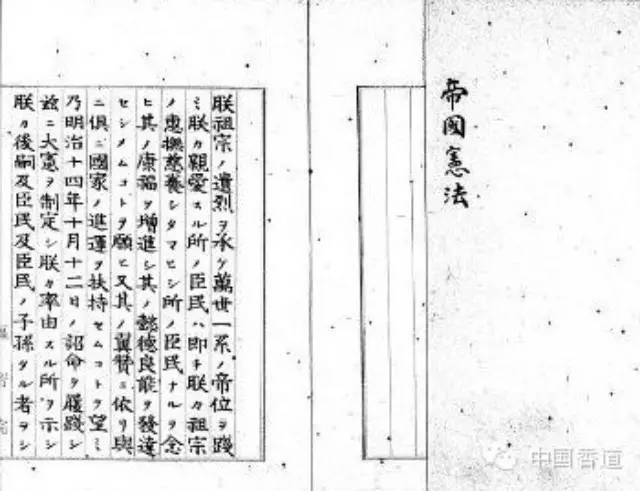 帝國憲法
朕祖宗ノ遺烈ヲ承ケ萬世一系ノ帝位ヲ踐
ミ朕カ親愛スル所ノ臣民ハ即チ朕カ祖宗
ノ惠撫慈養シタマヒシ所ノ臣民ナルヲ念
ヒ其ノ康福ヲ增進シ其ノ懿德良能ヲ發達
セシメムコトヲ願ヒ又其ノ翼贊ニ依リ與
ニ俱ニ國家ノ進運ヲ扶持セムコトヲ望ミ
乃明治十四年十月十二日ノ詔命ヲ履踐シ
茲ニ大憲ヲ制定シ朕カ率由スル所ヲ示シ
朕カ後嗣及臣民及臣民ノ子孫タル者ヲシ
中国香道